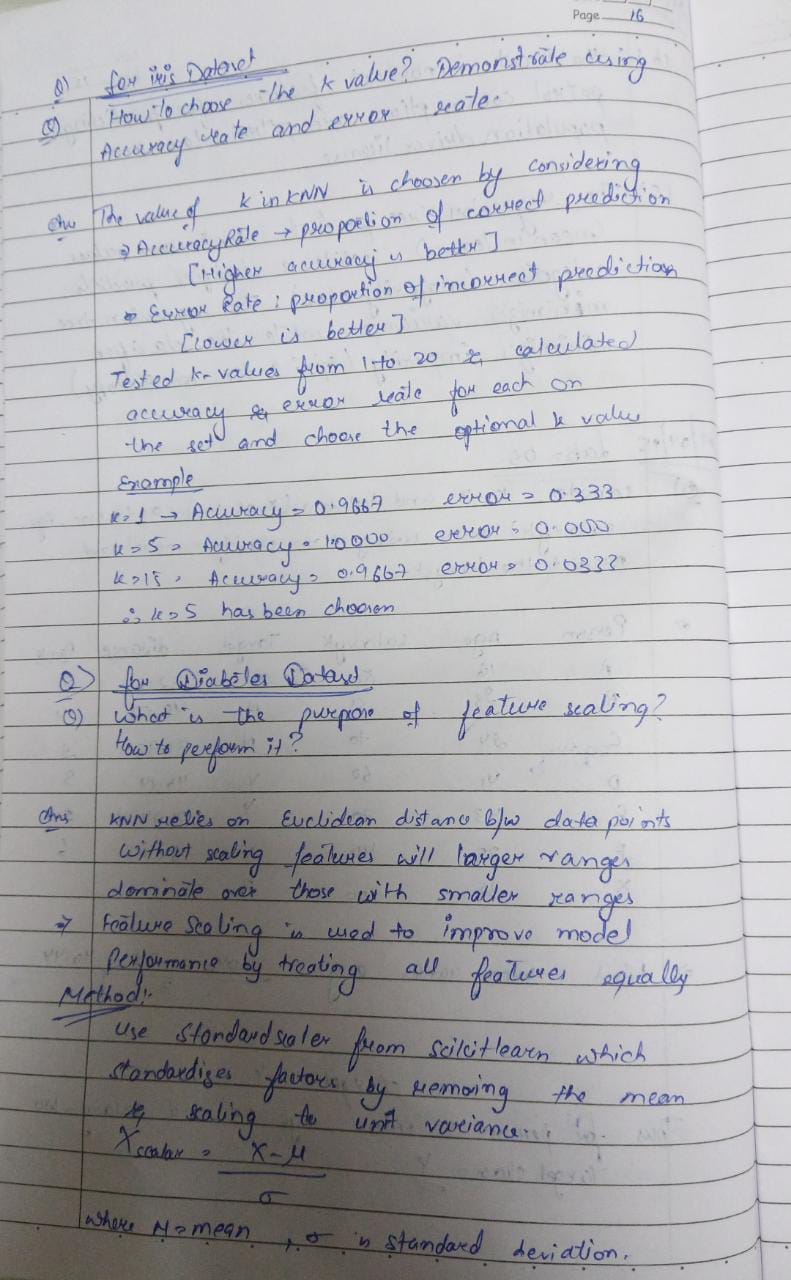 Page 16
Q) for iris Dataset
Q) How to choose the k value? Demonstrate using
Accuracy rate and error rate.
Ans The value of k in KNN is choosen by considering
→ Accuracy Rate → proportion of correct prediction
[Higher accuracy is better]
→ Error Rate : proportion of incorrect prediction
[lower is better]
Tested k-values from 1 to 20 & calculated
accuracy & error rate for each on
the set and choose the optional k value
Example
k=1 → Accuracy = 0.9667 error = 0.333
k=5 = Accuracy = 1.0000 error = 0.000
k=15, Accuracy = 0.9667 error = 0.0333
∴ k=5 has been choosen
Q> for Diabetes Dataset
Q) what is the purpose of feature scaling?
How to perform it?
Ans KNN relies on Euclidean distance b/w data points
without scaling features will larger ranges
dominate over those with smaller ranges
→ Feature Scaling is used to improve model
performance by treating all features equally
Method:-
use Standardscaler from scikitlearn which
standardizes factors by removing the mean
& scaling to unit variance.
X scalar = X-μ
σ
where μ = mean, σ is standard deviation.